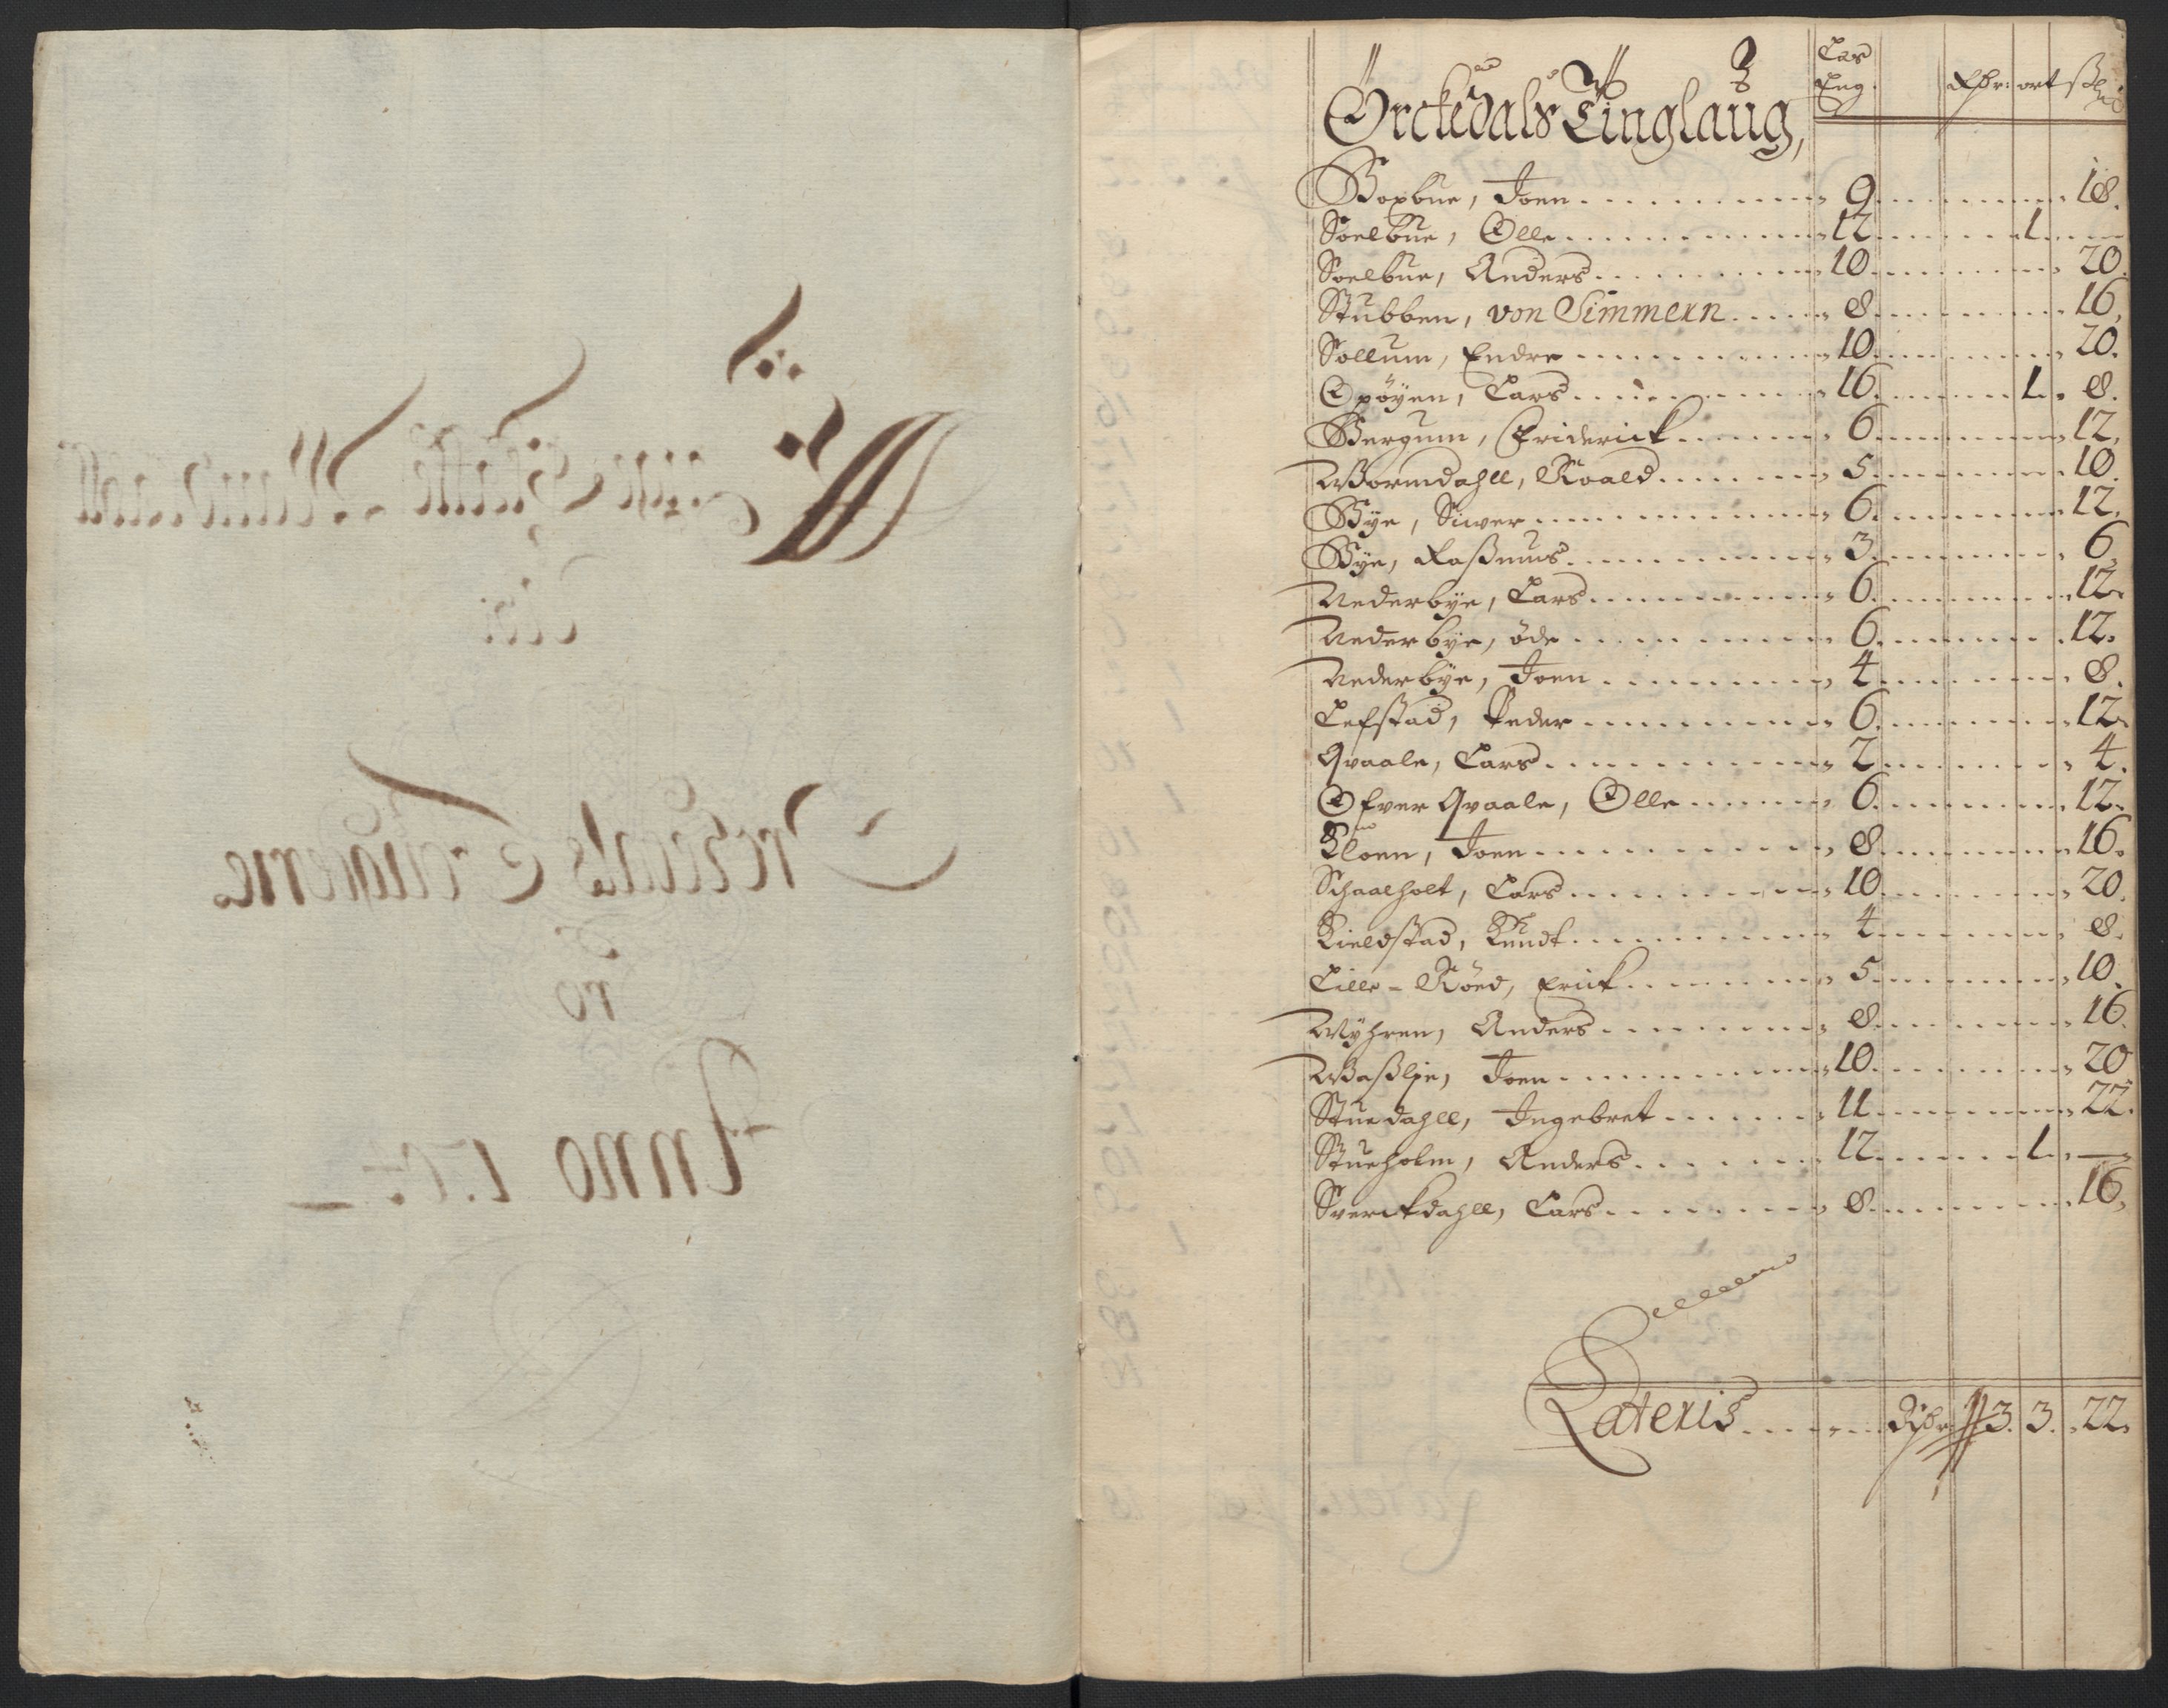 Örckedals Tinglaug,
Las Eng. Rdr: ort ß
Boxbue, Joen 9 18.
Soelbue, Olle 12 1
Soelbue, Anders 10 20.
Stubben, von Simmern 8 16.
Sollum, Endre 10 20.
Opöyen, Lars 16 1. 8.
Bergum, Friderick 6 12.
Wormdahll, Roald 5 10.
Bye, Siwer 6 12.
Bye, Raßmus 3 6.
Nederbye, Lars 6 12.
Nederbye, öde 6 12.
Nederbye, Joen 4 8.
Lefstad, Peder 6 12.
Qvaale, Lars 2 4.
Ofver Qvaale, Olle 6 12.
Kloen, Joen 8 16.
Schaalholt, Lars 10 20.
Kieldstad, Knudt 4 8.
Lille-Röed, Erick 5 10.
Myhren, Anders 8 16.
Waßlie, Joen 10 20
Stuedahll, Ingebret 11 22.
Stueholm, Anders 12 1. —
Sverckdahll, Lars 8 16.
Lateris Rdr 3. 3. 22.